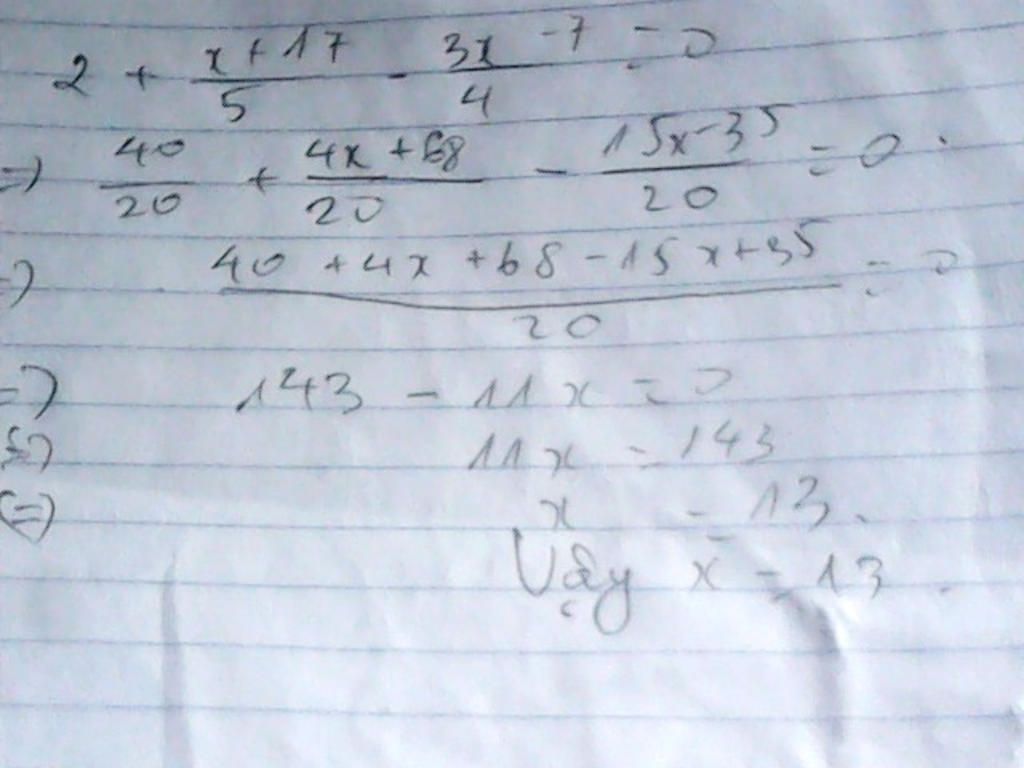 2 + \frac{x+17}{5} - \frac{3x-7}{4} = 0
=) \frac{40}{20} + \frac{4x+68}{20} - \frac{15x-35}{20} = 0.
=) \frac{40+4x+68-15x+35}{20} = 0
=) 143 - 11x = 0
(=) 11x = 143
(=) x = 13.
Vậy x = 13.